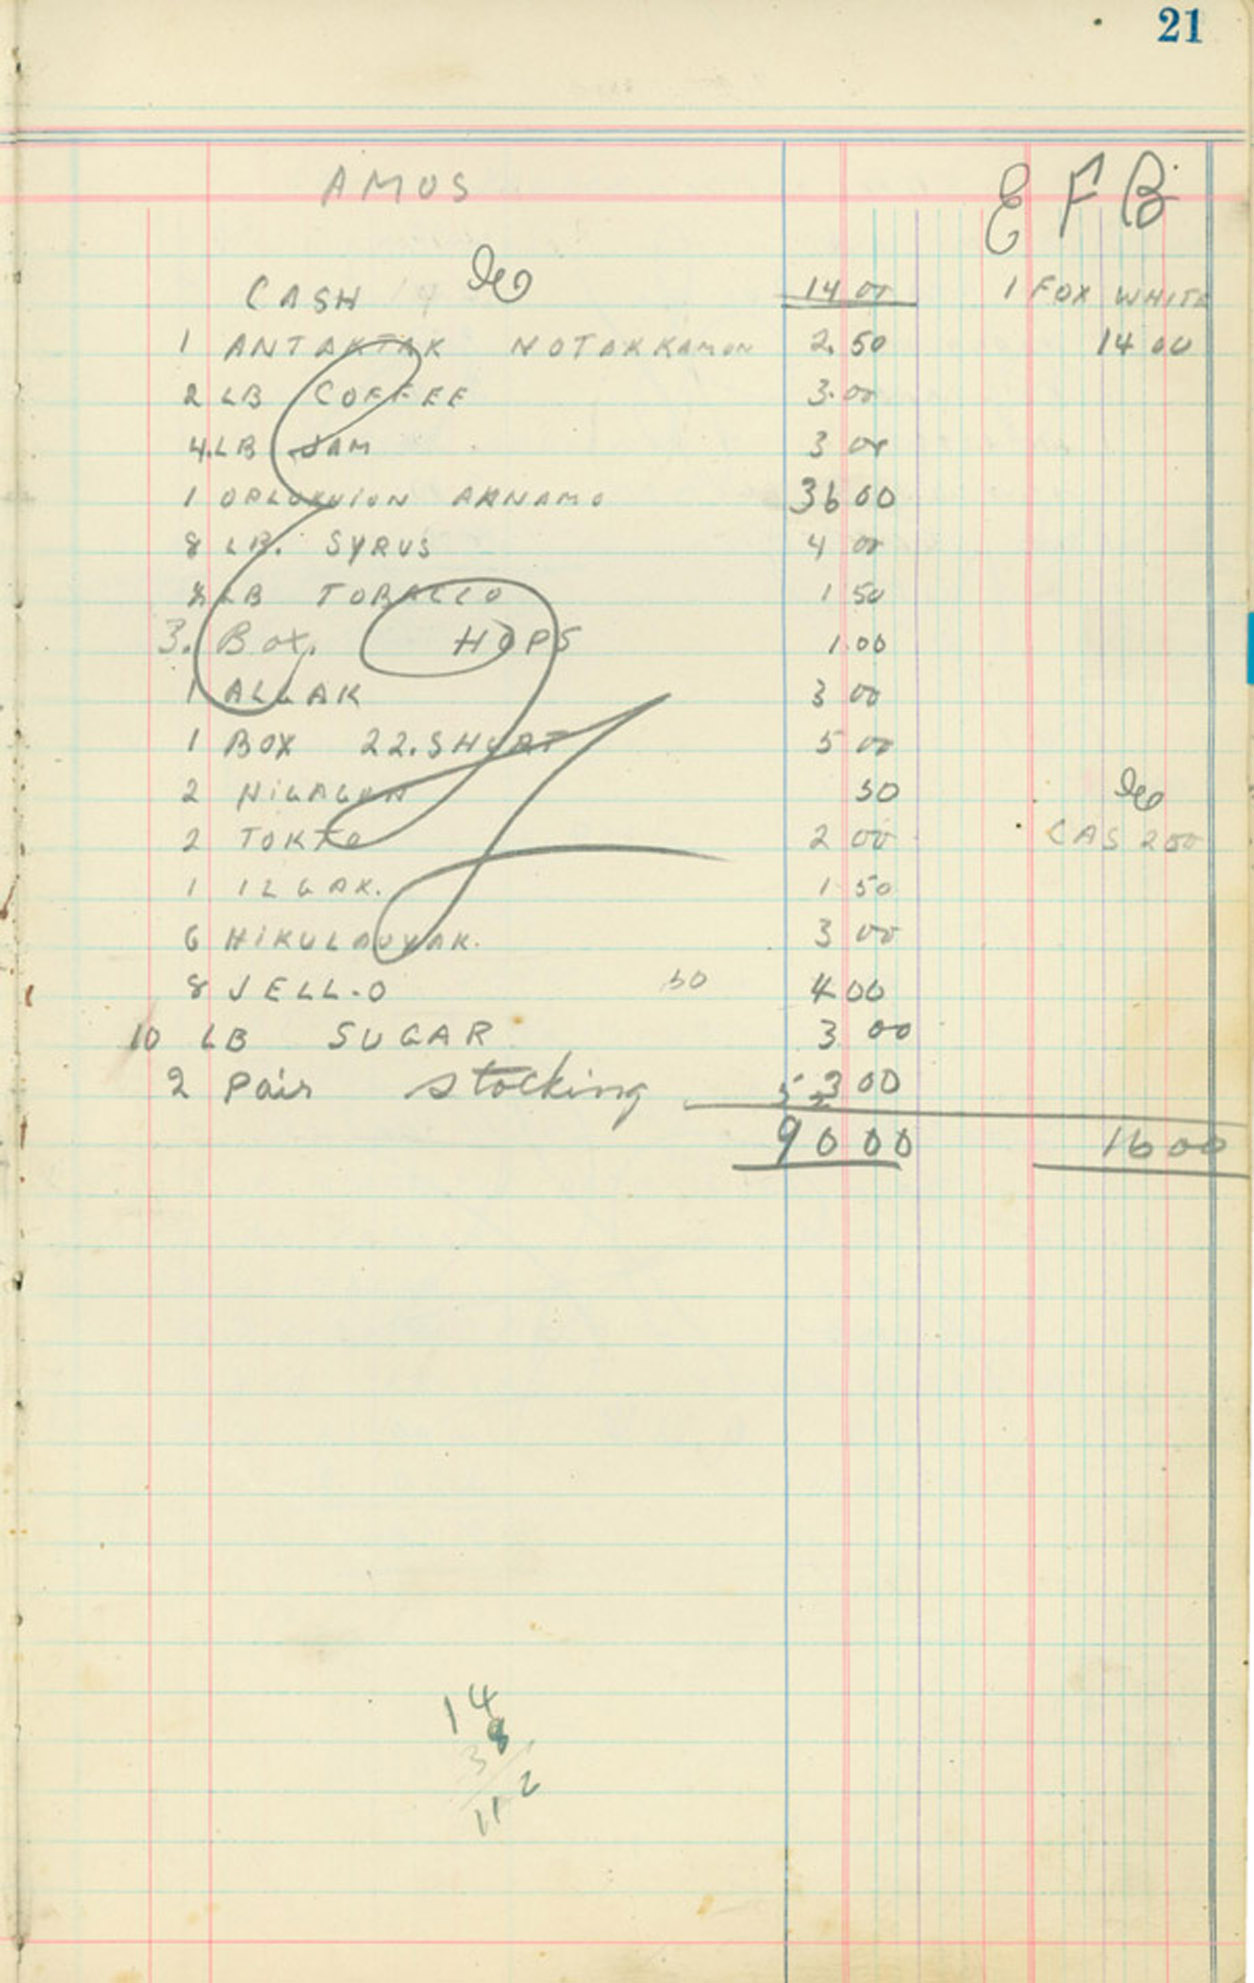 21
AMOS
E F B
CASH 14 00 1 FOX WHITE
1 ANTAKTAK NOTAKKAMON 2.50 14 00
2 LB COFFEE 3.00
4.LB JAM 3 00
1 AKNAMO 36 00
8 LB. SYRUS 4 00
LB TOBACCO 1 50
3. Box. HOPS 1.00
1 ALGAK 3 00
1 BOX 22.SHORT 5 00
2 50
2 2 00 CAS 200
1 ILGAK. 1 50
6 HIKULAUYAK. 3 00
8 JELL-O 50 4 00
10 LB SUGAR 3 00
2 Pair stocking 3 00
90 00 16 00
14
8
112